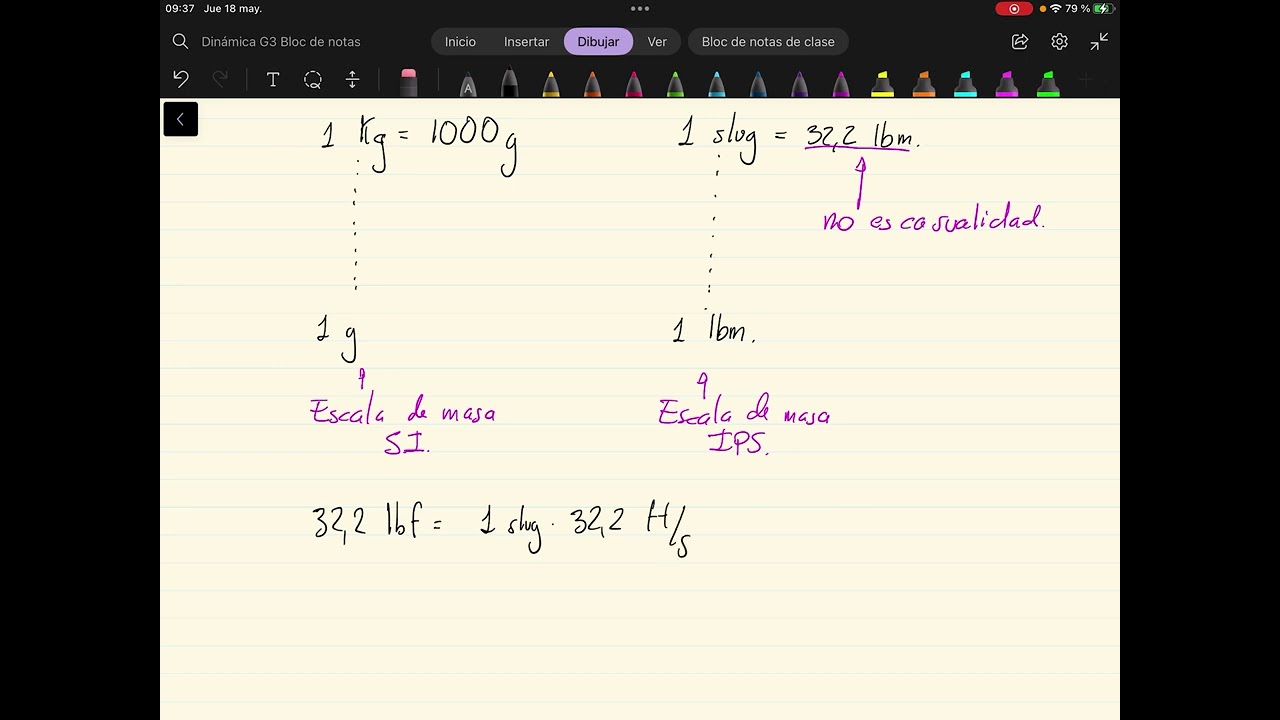 09:37 Jue 18 may.
79 %
Dinámica G3 Bloc de notas
Inicio Insertar Dibujar Ver Bloc de notas de clase
T
A
1 Kg = 1000 g
1 slug = 32,2 lbm.
no es casualidad.
1 g
1 lbm.
Escala de masa
SI.
Escala de masa
IPS.
32,2 lbf = 1 slug · 32,2 ft/s